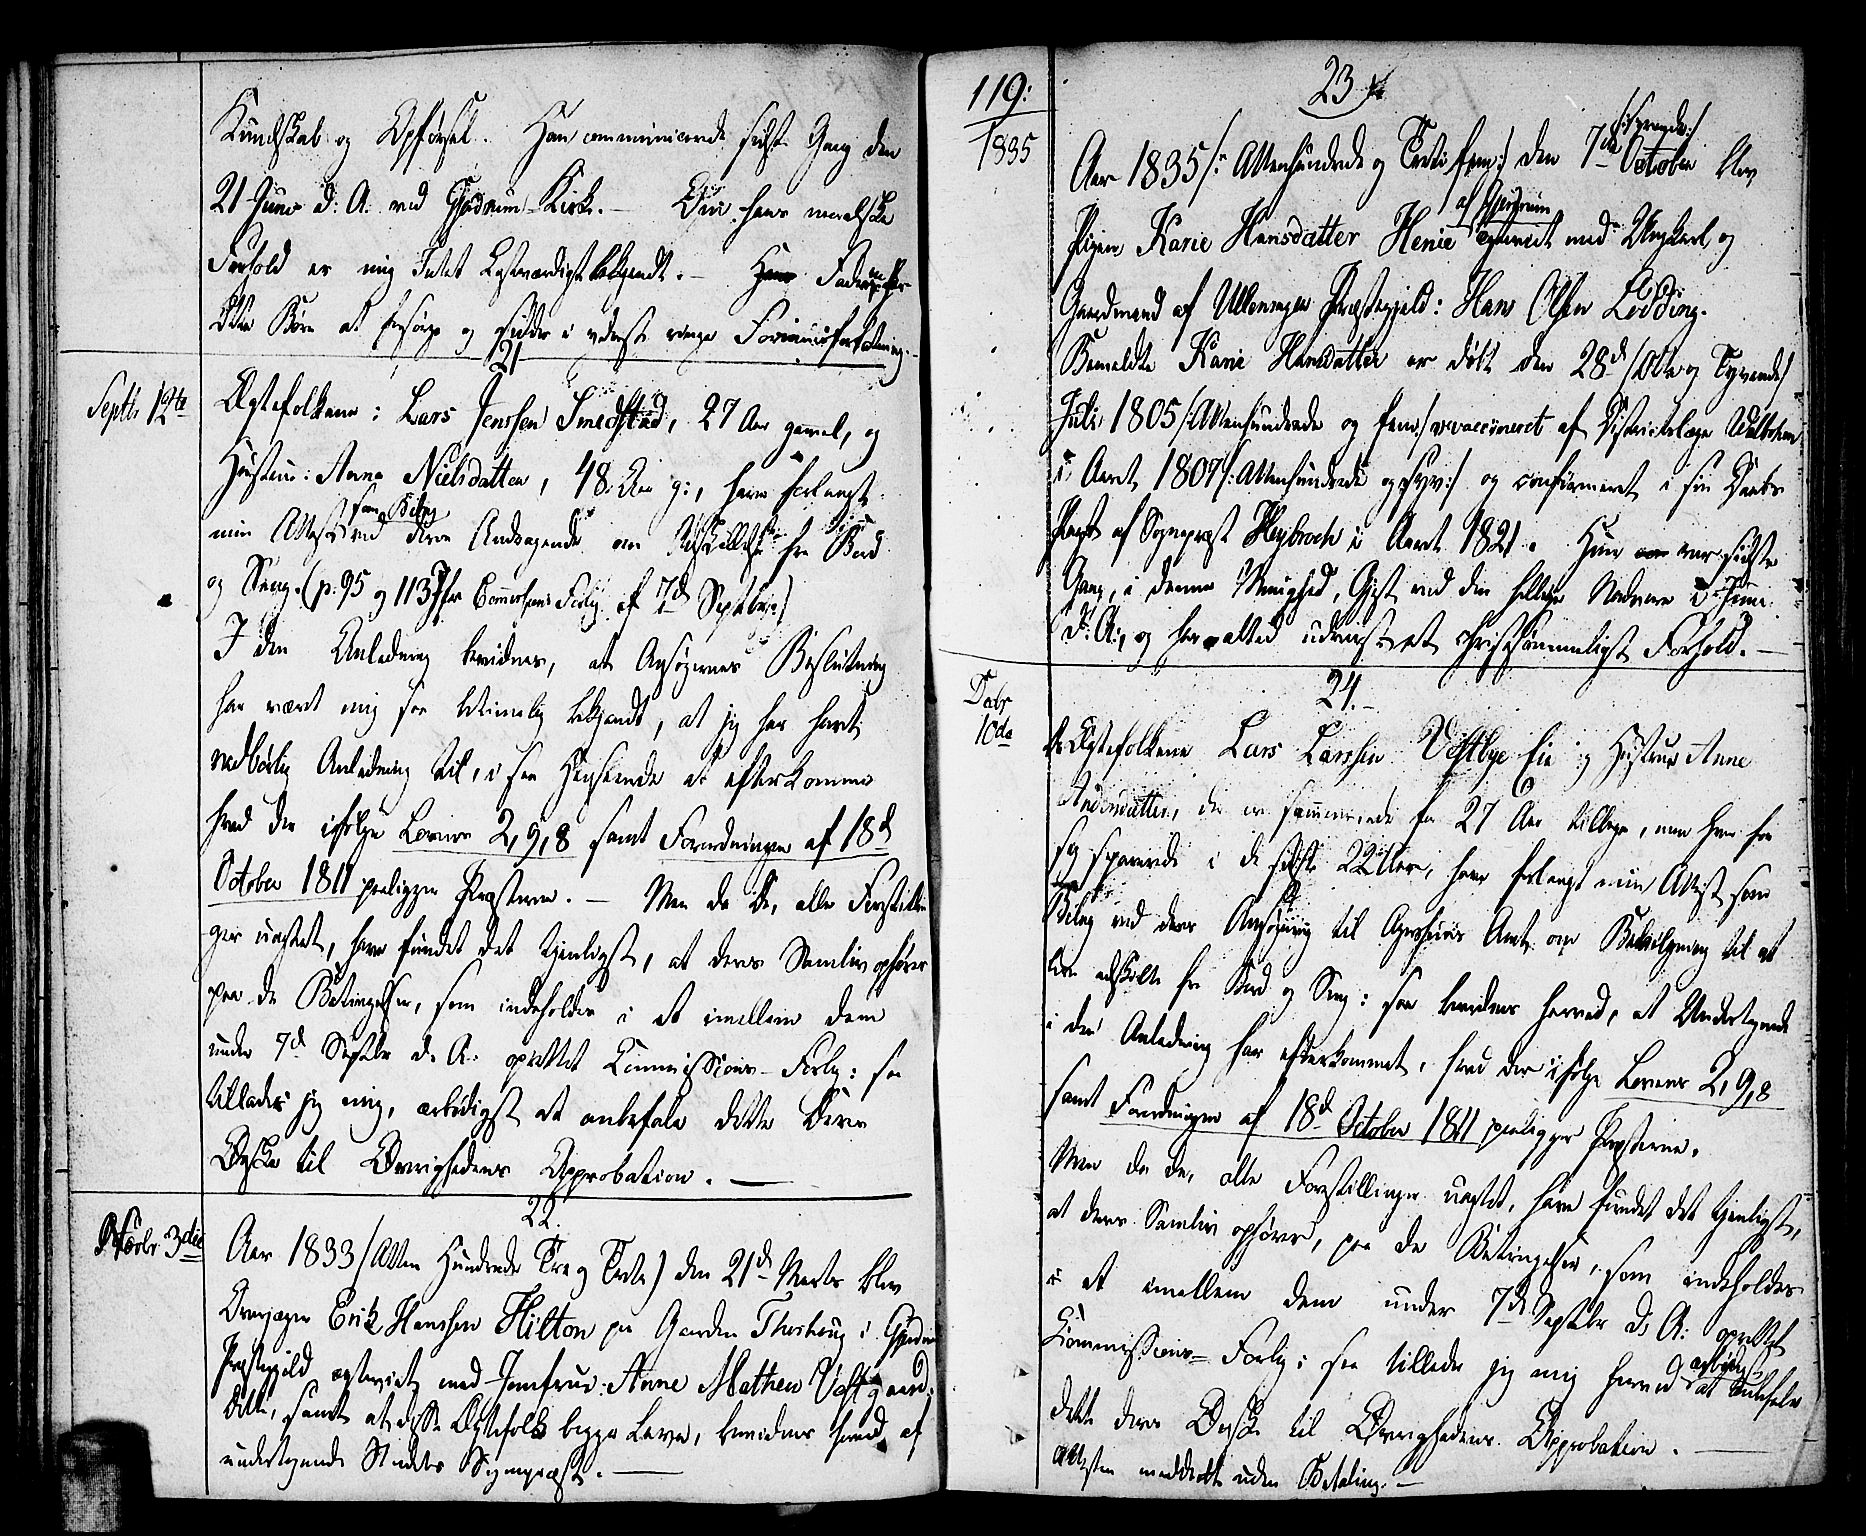 Kundskab og Opførsel. Han communicerede sidste Gang den
21 Juni d: A. ved Gjedrum-Kirke. – Om hans moralske
Forhold er mig Intet Lastværdigt bekjendt. – Fader
Børn at forsørge og sidder i yderst ringe Formuesforfatning.
21
Septbr 12te
Ægtefolkene: Lars Jenssen Smedstad, 27 Aar gammel, og
Hustrue: Anne Nielsdatter, 48 Aar g:, have forlangt
som Bilag
min Attest ved deres Andragende om Adskillelse fra Bord
og Seng. (p. 95 og 113 Commissions Forlig af 7d Septbr)
I den Anledning bevidnes, at Ansøgernes Beslutning
har været mig saa betimelig bekjendt, at jeg har havt
nødvendig Anledning til, i saa Henseende at efterkomme
hvad der ifølge Lovens 2, 9, 8 samt Forordningen af 18d
October 1811 paaligger Præsterne. – Men da De, alle Forestillin-
ger uagtet, have fundet det tjenligst, at deres Samliv ophører
paa de Betingelser, som indeholdes i et imellem dem
under 7d Septbr d. A. oprettet Commissions-Forlig: saa
tillader jeg mig, ærbødigst at anbefale dette deres
Ønske til Øvrighedens Approbation. –
22.
Novbr 3die
Aar 1833 (Atten Hundrede Tre og Trete) den 21d Marts blev
Erik Hanssen Hilton paa Gaarden i Gjedrum
Præstegjeld ægteviet med Jomfrue: Anne Mathea Vestgaard:
Dette, samt at disse Ægtefolk begge Leve, bevidnes herved af
undertegnede Stedets Sognepræst. –
119:
1835
23
Aar 1835 /: Attenhundrede og Treti fem:/ den 7de /:syvende:/ October blev
af Gjedrum
Pigen Karie Hansdatter Henie ægteviet med Ungkarl og
Gaardmand af Ullensager Præstegjeld: Hans Olsen Lødding.
Bemeldte Karie Hansdatter er født den 28d /Otte og Tyvende/
Juli 1805 /:Attenhundrede og fem:/ vaccineret af Districtslæge
i Aaret 1807 /:Attenhundrede og syv:/ og confirmeret i sin Daabs
Pagt af Sognepræst Heybroch i Aaret 1821. Hun var sidste
Gang, i denne Menighed, Gjest ved den hellige Nadvere i Junii
d: A:, og har altid udviist et christsømmeligt Forhold. –
24.
Decbr
10de
Ægtefolkene Lars Larssen Vestbye Eie og Hustrue Anne
Andersdatter, der er sammenviede for 27 Aar tillige, men have fra
sparede i de sidste 22 Aar, have forlangt min Attest som
Bilag ved deres Ansøgning til Agershuus Amt om Bevilgning til at
leve adskilte fra Bord og Seng: saa bevidnes herved, at Undertegnede
i den Anledning har efterkommet, hvad der ifølge Lovens 2, 9, 8
samt Forordningen af 18d October 1811 paaligger Præsterne.
Men da De, alle Forestillinger uagtet, have fundet det tjenligst,
at deres Samliv ophører, paa de Betingelser, som indeholdes
i et imellem dem under 7de Septbr d: A: oprettet
Commissions-Forlig: saa tillader jeg mig herved ærbødigst at anbefale
dette deres Ønske til Øvrighedens Approbation. –
Attesten meddeelt uden Betaling. –